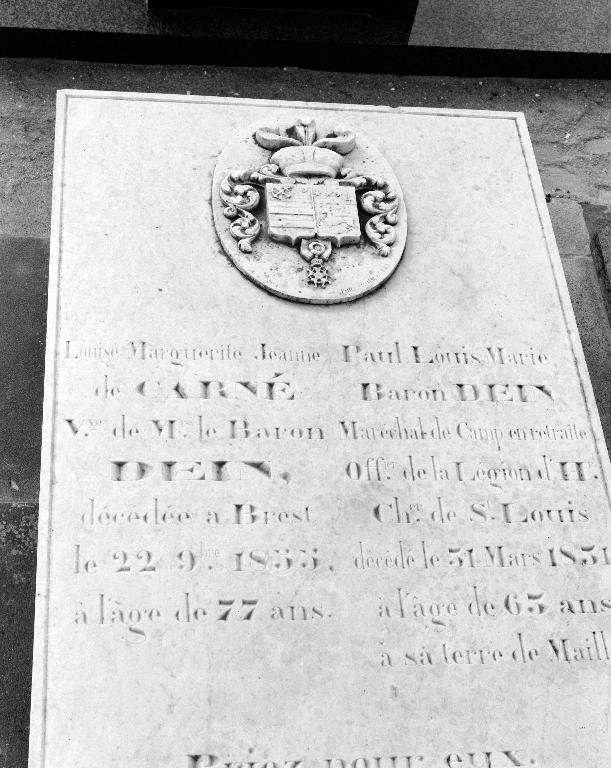 Louise Marguerite Jeanne
de CARNÉ
V.ve de Mr. le Baron
DEIN,
décédée a Brest
le 22 9.bre 1833,
à l'âge de 77 ans.
Paul Louis Marie
Baron DEIN
Maréchal de Camp en retraite
Off.er de la Légion d'H.
Ch.er de S.t Louis
décédé le 31 Mars 1831
à l'âge de 63 ans
a sa terre de Maill
Priez pour eux.